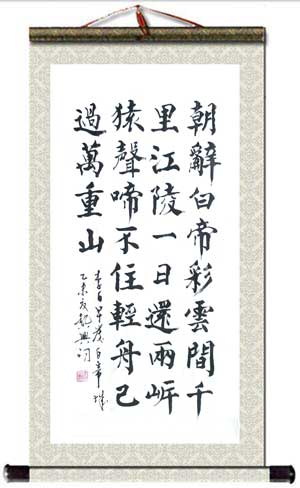 朝辭白帝彩雲間千
里江陵一日還兩岸
猿聲啼不住輕舟已
過萬重山
李白早發白帝城
乙未